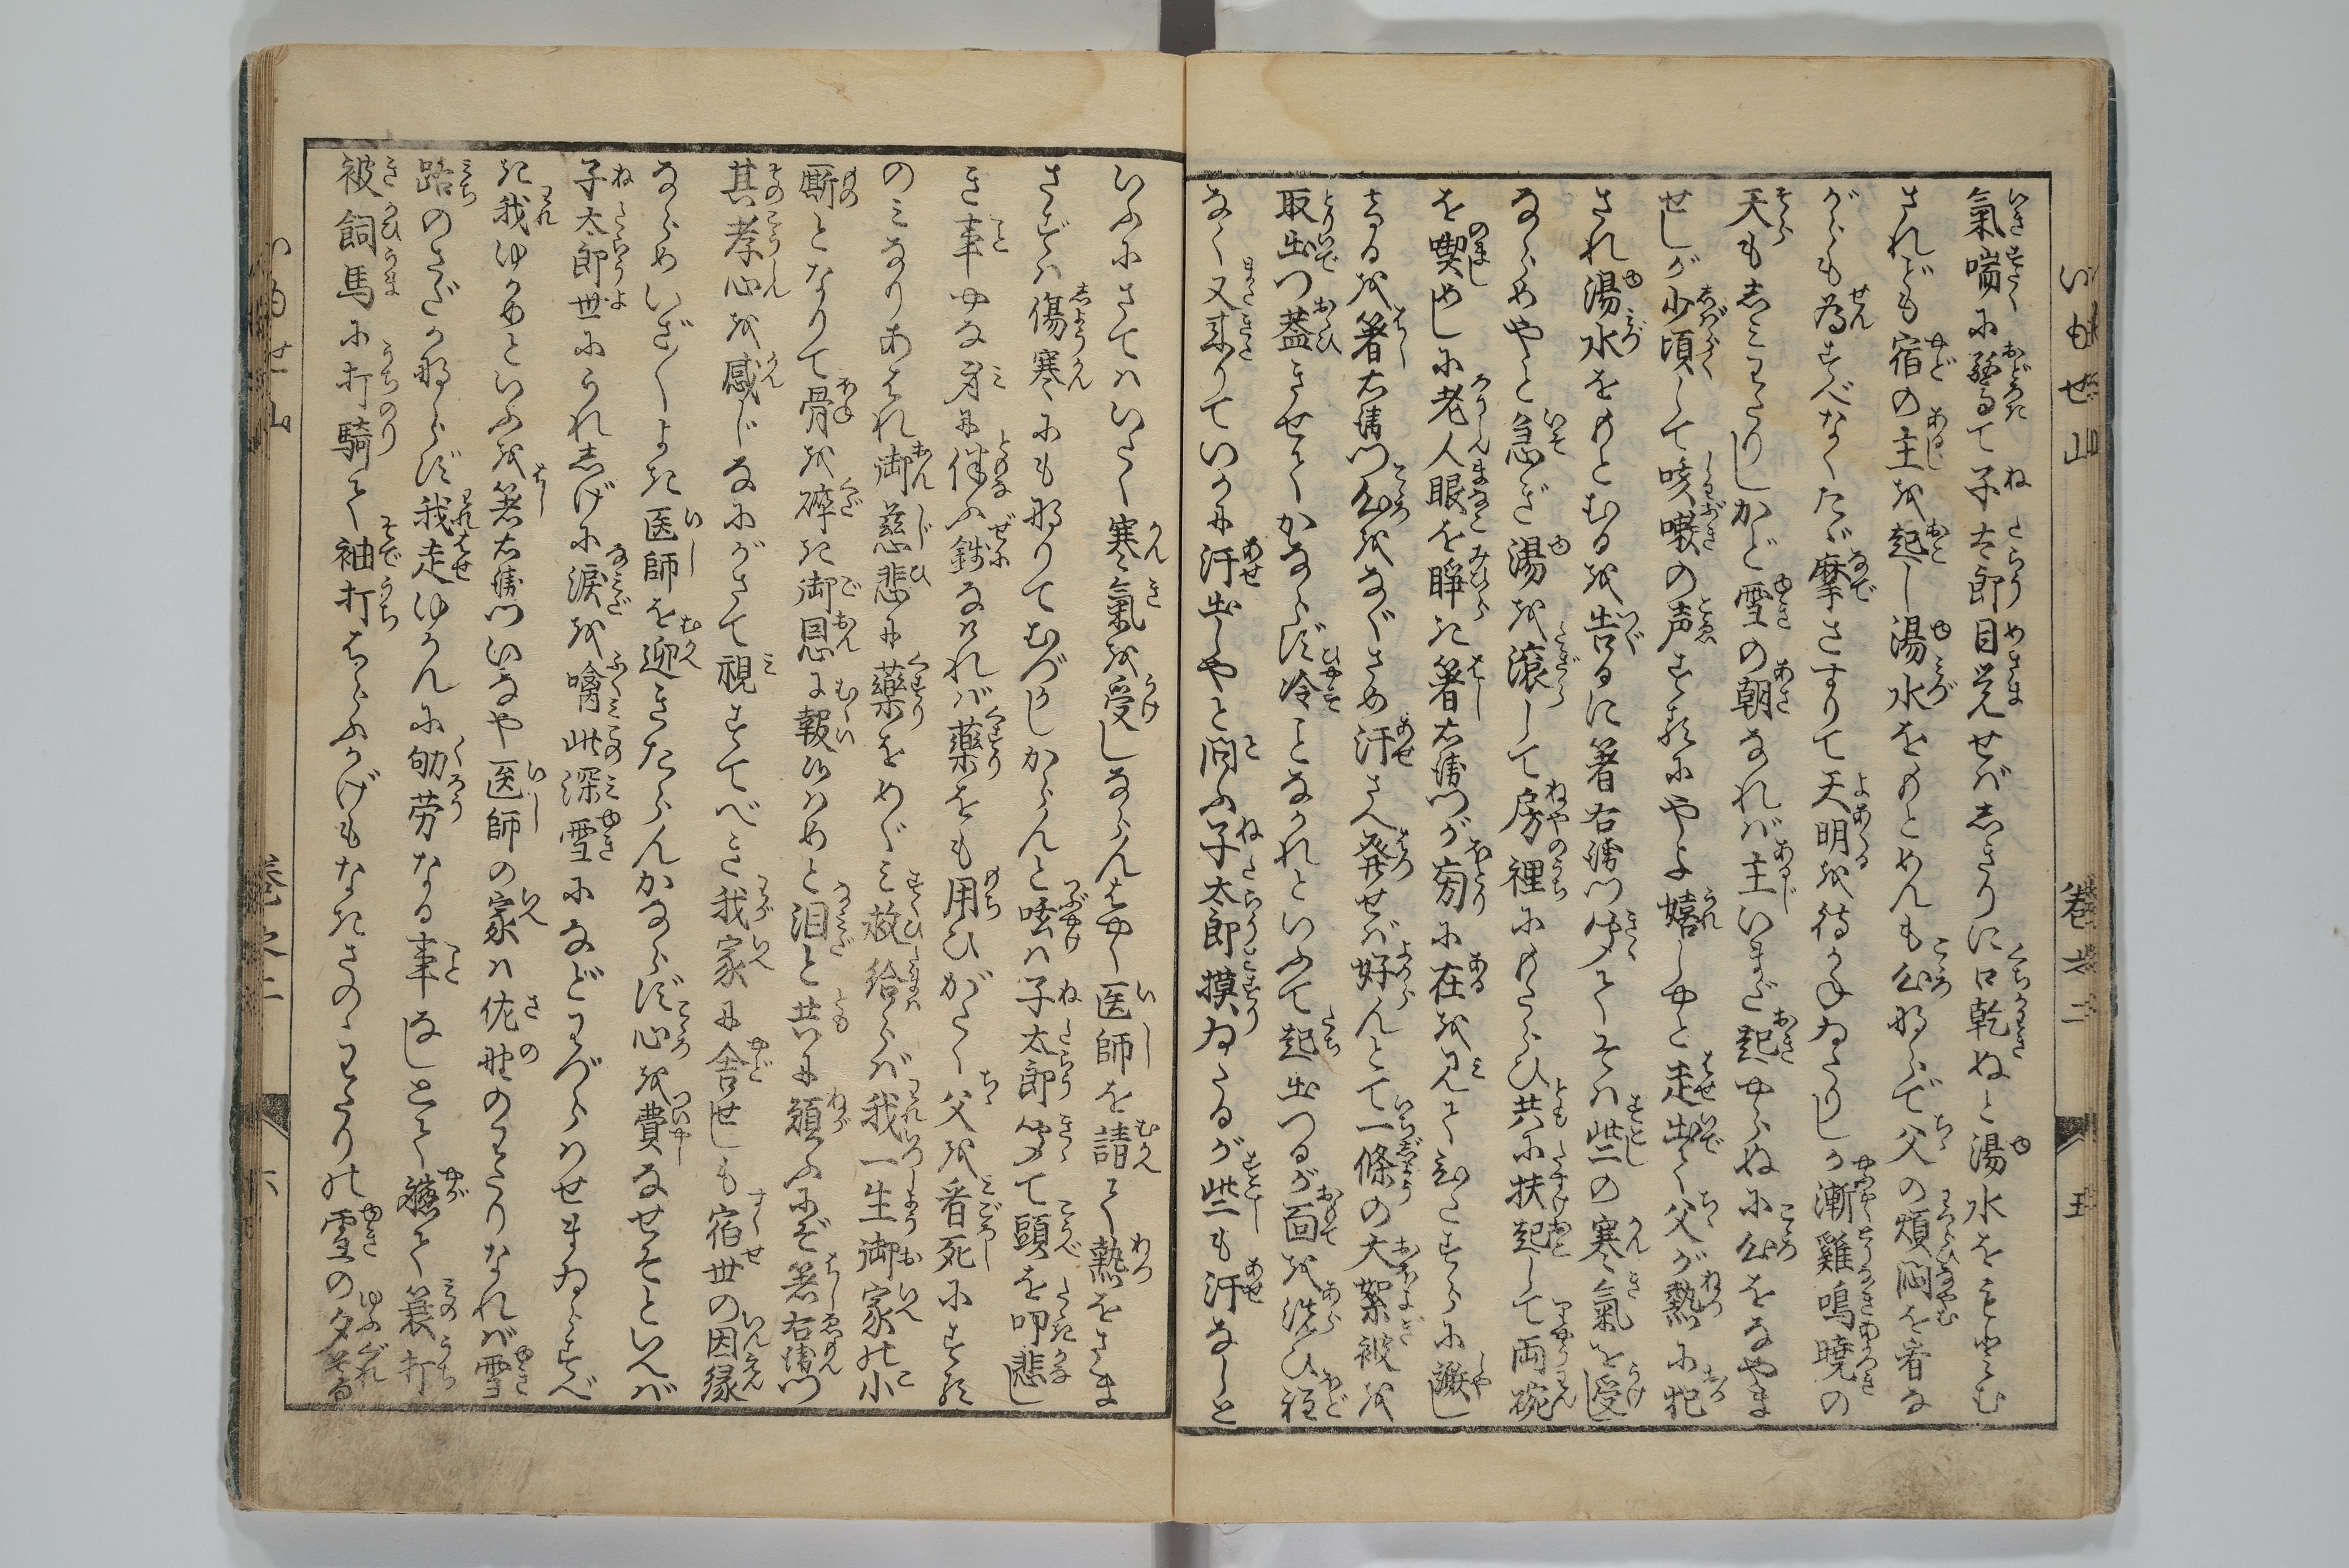 氣喘に驚て子太郎目覚せばしきりに口乾ぬと湯水をもとむ
されども宿の主を起し湯水をもとめんも心ならで父の煩悶を看な
がらも為すべなくたゞ摩さすりて天明を待かねゐたりしが漸雞鳴暁の
天もしらみわたりしかど雪の朝なれば主いまだ起やらぬに心をなやま
せしが少頃して咳嗽の声するにやよ嬉しやと走出て父が熱に犯
され湯水をもとむるを告るに箸右衛門聞てそは些の寒氣を受
ならめやと急ぎ湯を滾して房裡にもたらひ共に扶起して両碗
を喫めしに老人眼を睜き箸右衛門が旁に在を見てひたすらに謝し
けるを箸右衛門心をなぐさめ汗さへ発せば好らんとて一條の大絮被を
取出つ蓋きせてかならず冷ことなかれといふて起出つるが面を洗ひ程
なく又来りていかに汗出しやと問ふ子太郎摸ゐたるが些も汗なしと
いふにさてはいたく寒氣を受しならんはやく医師を請て熱をさま
さずは傷寒にも成りてむづかしからんと呟は子太郎聞て頭を叩悲し
き事やな身に伴ふ銭なければ薬をも用ひがたく父を看死にする
のみなりあはれ御慈悲に薬をめぐみ救給らば我一生御家の小
厮となりて骨を砕き御恩に報はめと泪と共に願ふにぞ箸右衛門
其孝心を感じなにがさて視すてべき我家に舎せしも宿世の因縁
ならめいざ〳〵よき医師を迎きたらんかならず心を費なせそといへば
子太郎世にうれしげに涙を噙此深雪になどわづらはせまゐらすべ
き我ゆかめといふを箸右衛門いなや医師の家は佐野のわたりなれば雪
路のさだか成らず我走ゆかんに劬労なる事なしとて軈て簑打
被飼馬に打騎て袖打はらふかげもなきさのゝわたりの雪の夕ぐれ
いもせ山
巻之二
五
いもせ山
巻之二
六